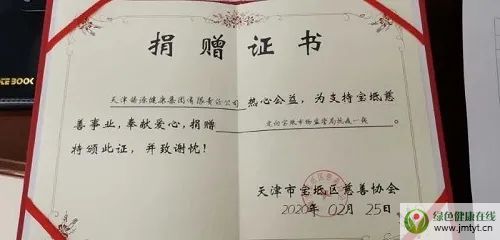 捐赠证书
天津 健康集团有限责任公司 热心公益，为支持宝坻慈
善事业，奉献爱心，捐赠 定向宝坻市场监管局抗疫一线
特颁此证，并致谢忱！
天津市宝坻区慈善协会
2020年 02月 25日
BOOK
绿色健康在线
www.jmtyt.cn